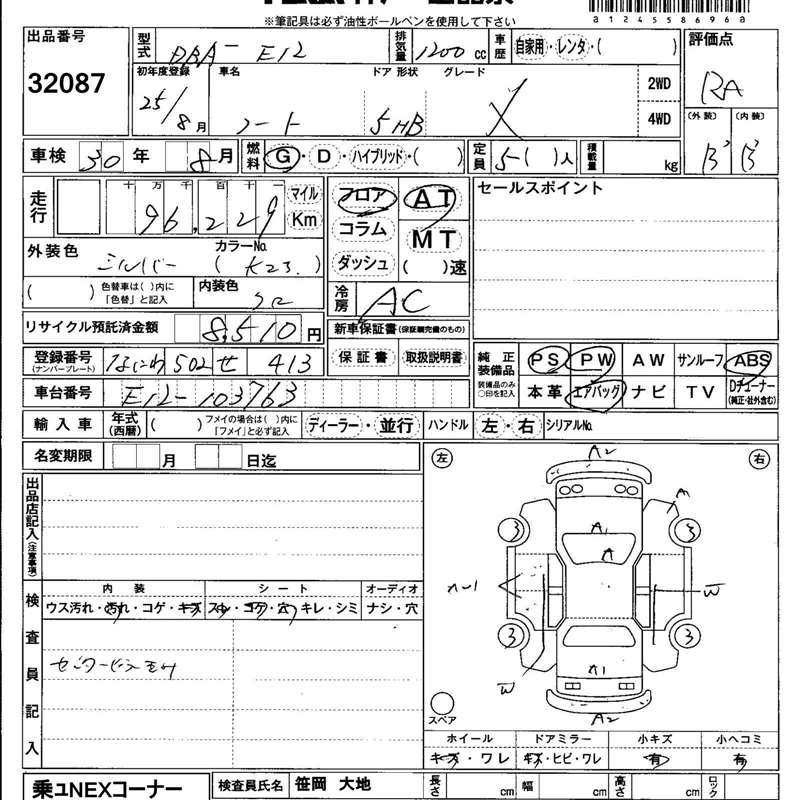 ※筆記具は必ず油性ボールペンを使用して下さい
a1245586 96a
出品番号 型式 DBA- E12 排気量 1200 cc 車歴 自家用・レンタ・( ) 評価点
32087 RA
初年度登録 車名 ドア 形状 グレード 2WD
25/8月 ノート 5 HB X 4WD
(外装) (内装)
B B
車検 30 年 8月 燃料 G・D・ハイブリッド・( ) 定員 5( )人 積載量 kg
走行 十 万 千 百 十 一 マイル フロア AT セールスポイント
96,229 Km コラム MT
外装色 シルバー カラーNo. ( K23. ) ダッシュ ( )速
( ) 色替車は( )内に「色替」と記入 内装色 冷房 AC
リサイクル預託済金額 8,510 円 新車保証書(保証継続のもの)
登録番号(ナンバープレート) なにわ 502 せ 413 保証書 取扱説明書 純正装備品 PS PW AW サンルーフ ABS
車台番号 E12-103763 装備品のみ○印を記入 本革 エアバッグ ナビ TV Dチューナー(純正・社外含む)
輸入車 年式(西暦) ( ) フメイの場合は( )内に「フメイ」と必ず記入 ディーラー・並行 ハンドル 左・右 シリアルNo.
名変期限 月 日迄
左 右
出品店記入(注意事項)
A2
A
A1
A
3 3
W
3 3
A1
W
A2
スペア
検査員記入
内装 シート オーディオ
ウス汚れ・汚れ・コゲ・キズ スレ・コゲ・穴・キレ・シミ ナシ・穴
ホイール ドアミラー 小キズ 小ヘコミ
キズ・ワレ キズ・ヒビ・ワレ 有 有
乗ユNEXコーナー 検査員氏名 笹岡 大地 長さ cm 幅 cm 高さ cm ロック